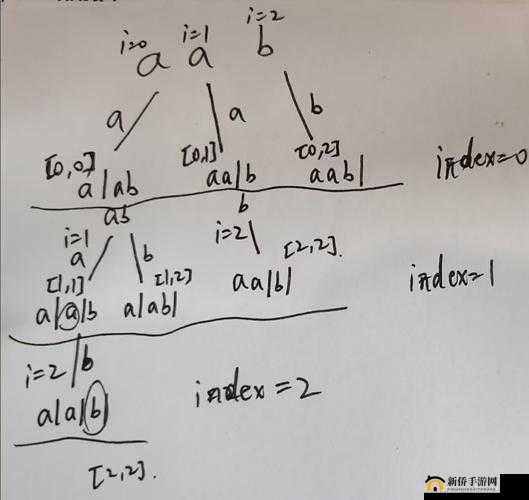 i=0 i=1 i=2
a a b
a a b
[0,0] [0,1] [0,2]
a|ab aa|b aab| index=0
ab b
i=1 a b i=2 [2,2].
[1,1] [1,2] aa|b| index=1
a|a|b a|ab|
i=2 b
a|a|b| index=2
[2,2].
新侨手游网